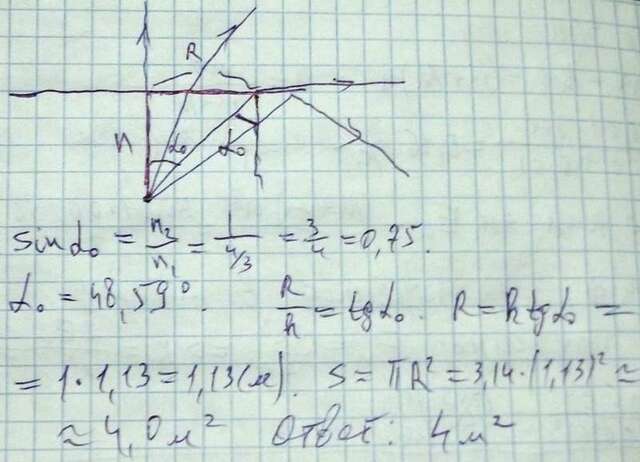 R
h α₀ α₀
sin α₀ = n₂/n₁ = 1/(4/3) = 3/4 = 0,75.
α₀ = 48,59°. R/h = tg α₀. R = h tg α₀ =
= 1 · 1,13 = 1,13 (м). S = πR² = 3,14 · (1,13)² ≈
≈ 4,0 м² Ответ: 4 м²